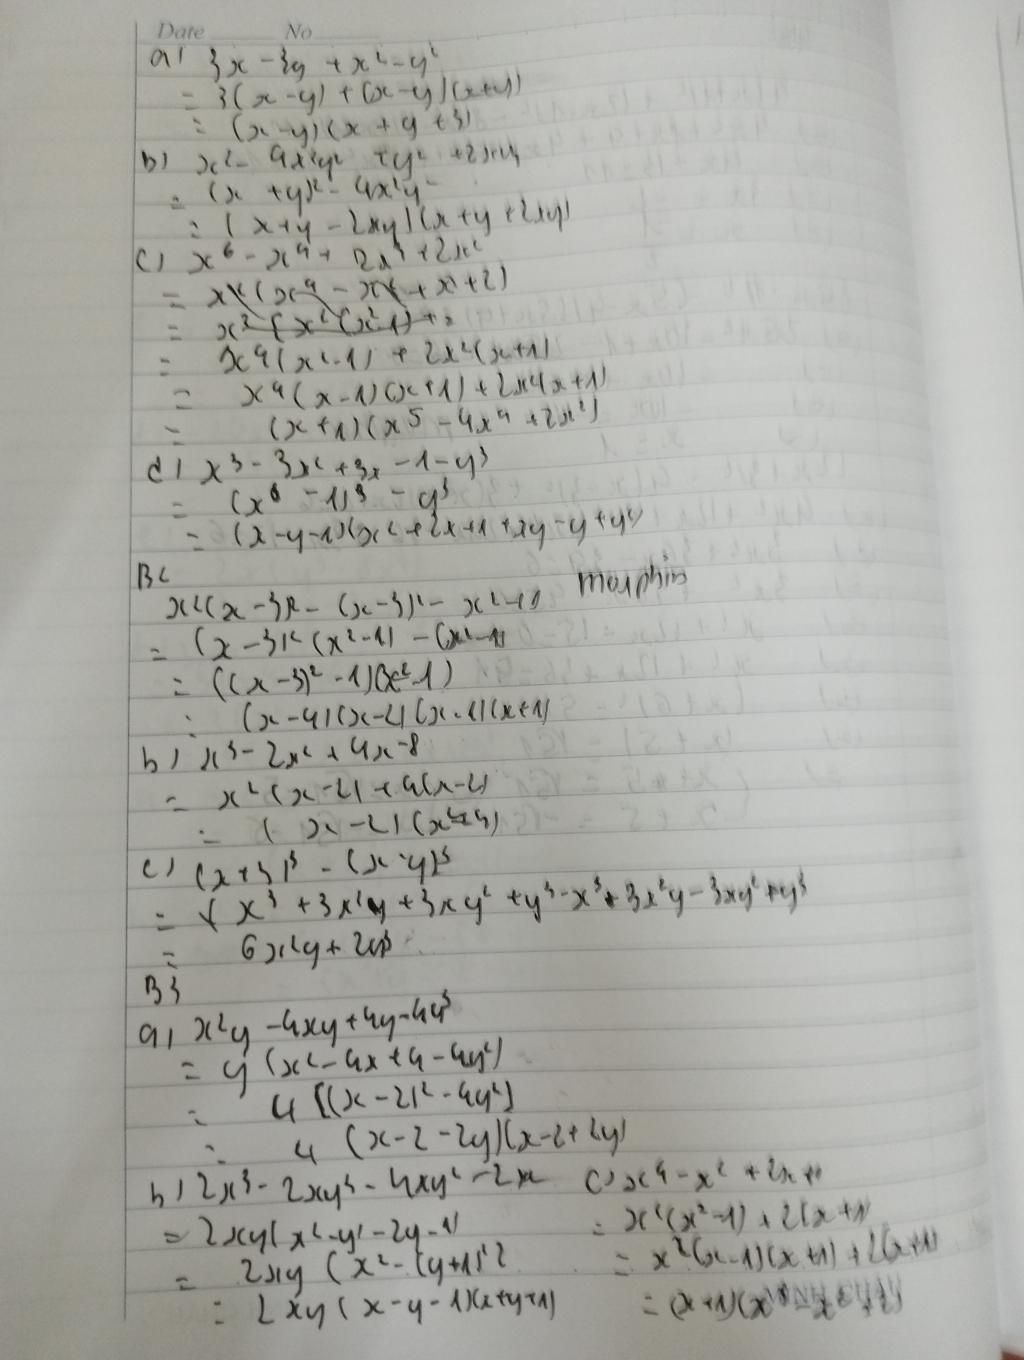 Date No
a) 3x - 3y + x² - y²
= 3(x - y) + (x - y)(x+y)
= (x - y)(x + y + 3)
b) x² - 4x²y² + y² + 2xy
= (x + y)² - 4x²y²
= (x+y - 2xy)(x+y + 2xy)
c) x⁶ - x⁴ + 2x³ + 2x²
= x⁴(x² - 1) + 2x²(x+1)
= x⁴(x - 1)(x+1) + 2x²(x+1)
= (x+1)(x⁵ - 4x⁴ + 2x²)
d) x³ - 3x² + 3x - 1 - y³
= (x - 1)³ - y³
= (x - y - 1)(x² + 2x + 1 + xy - y + y²)
B2
x²(x - 3)² - (x - 3)² - x² + 1
= (x - 3)²(x² - 1) - (x² - 1)
= ((x - 3)² - 1)(x² - 1)
= (x - 4)(x - 2)(x - 1)(x+1)
b) x³ - 2x² + 4x - 8
= x²(x - 2) + 4(x - 2)
= (x - 2)(x² + 4)
c) (x + y)³ - (x - y)³
= x³ + 3x²y + 3xy² + y³ - x³ + 3x²y - 3xy² + y³
= 6x²y + 2y³
B3
a) x²y - 4xy + 4y - 4y³
= y (x² - 4x + 4 - 4y²)
= y [(x - 2)² - 4y²]
= y (x - 2 - 2y)(x - 2 + 2y)
b) 2x³ - 2xy³ - 4xy² - 2x
= 2xy(x² - y² - 2y - 1)
= 2xy (x² - (y+1)²)
= 2xy (x - y - 1)(x+y+1)
c) x⁴ - x² + 2x +
= x²(x² - 1) + 2(x + 1)
= x²(x - 1)(x + 1) + 2(x+1)
= (x+1)(x³